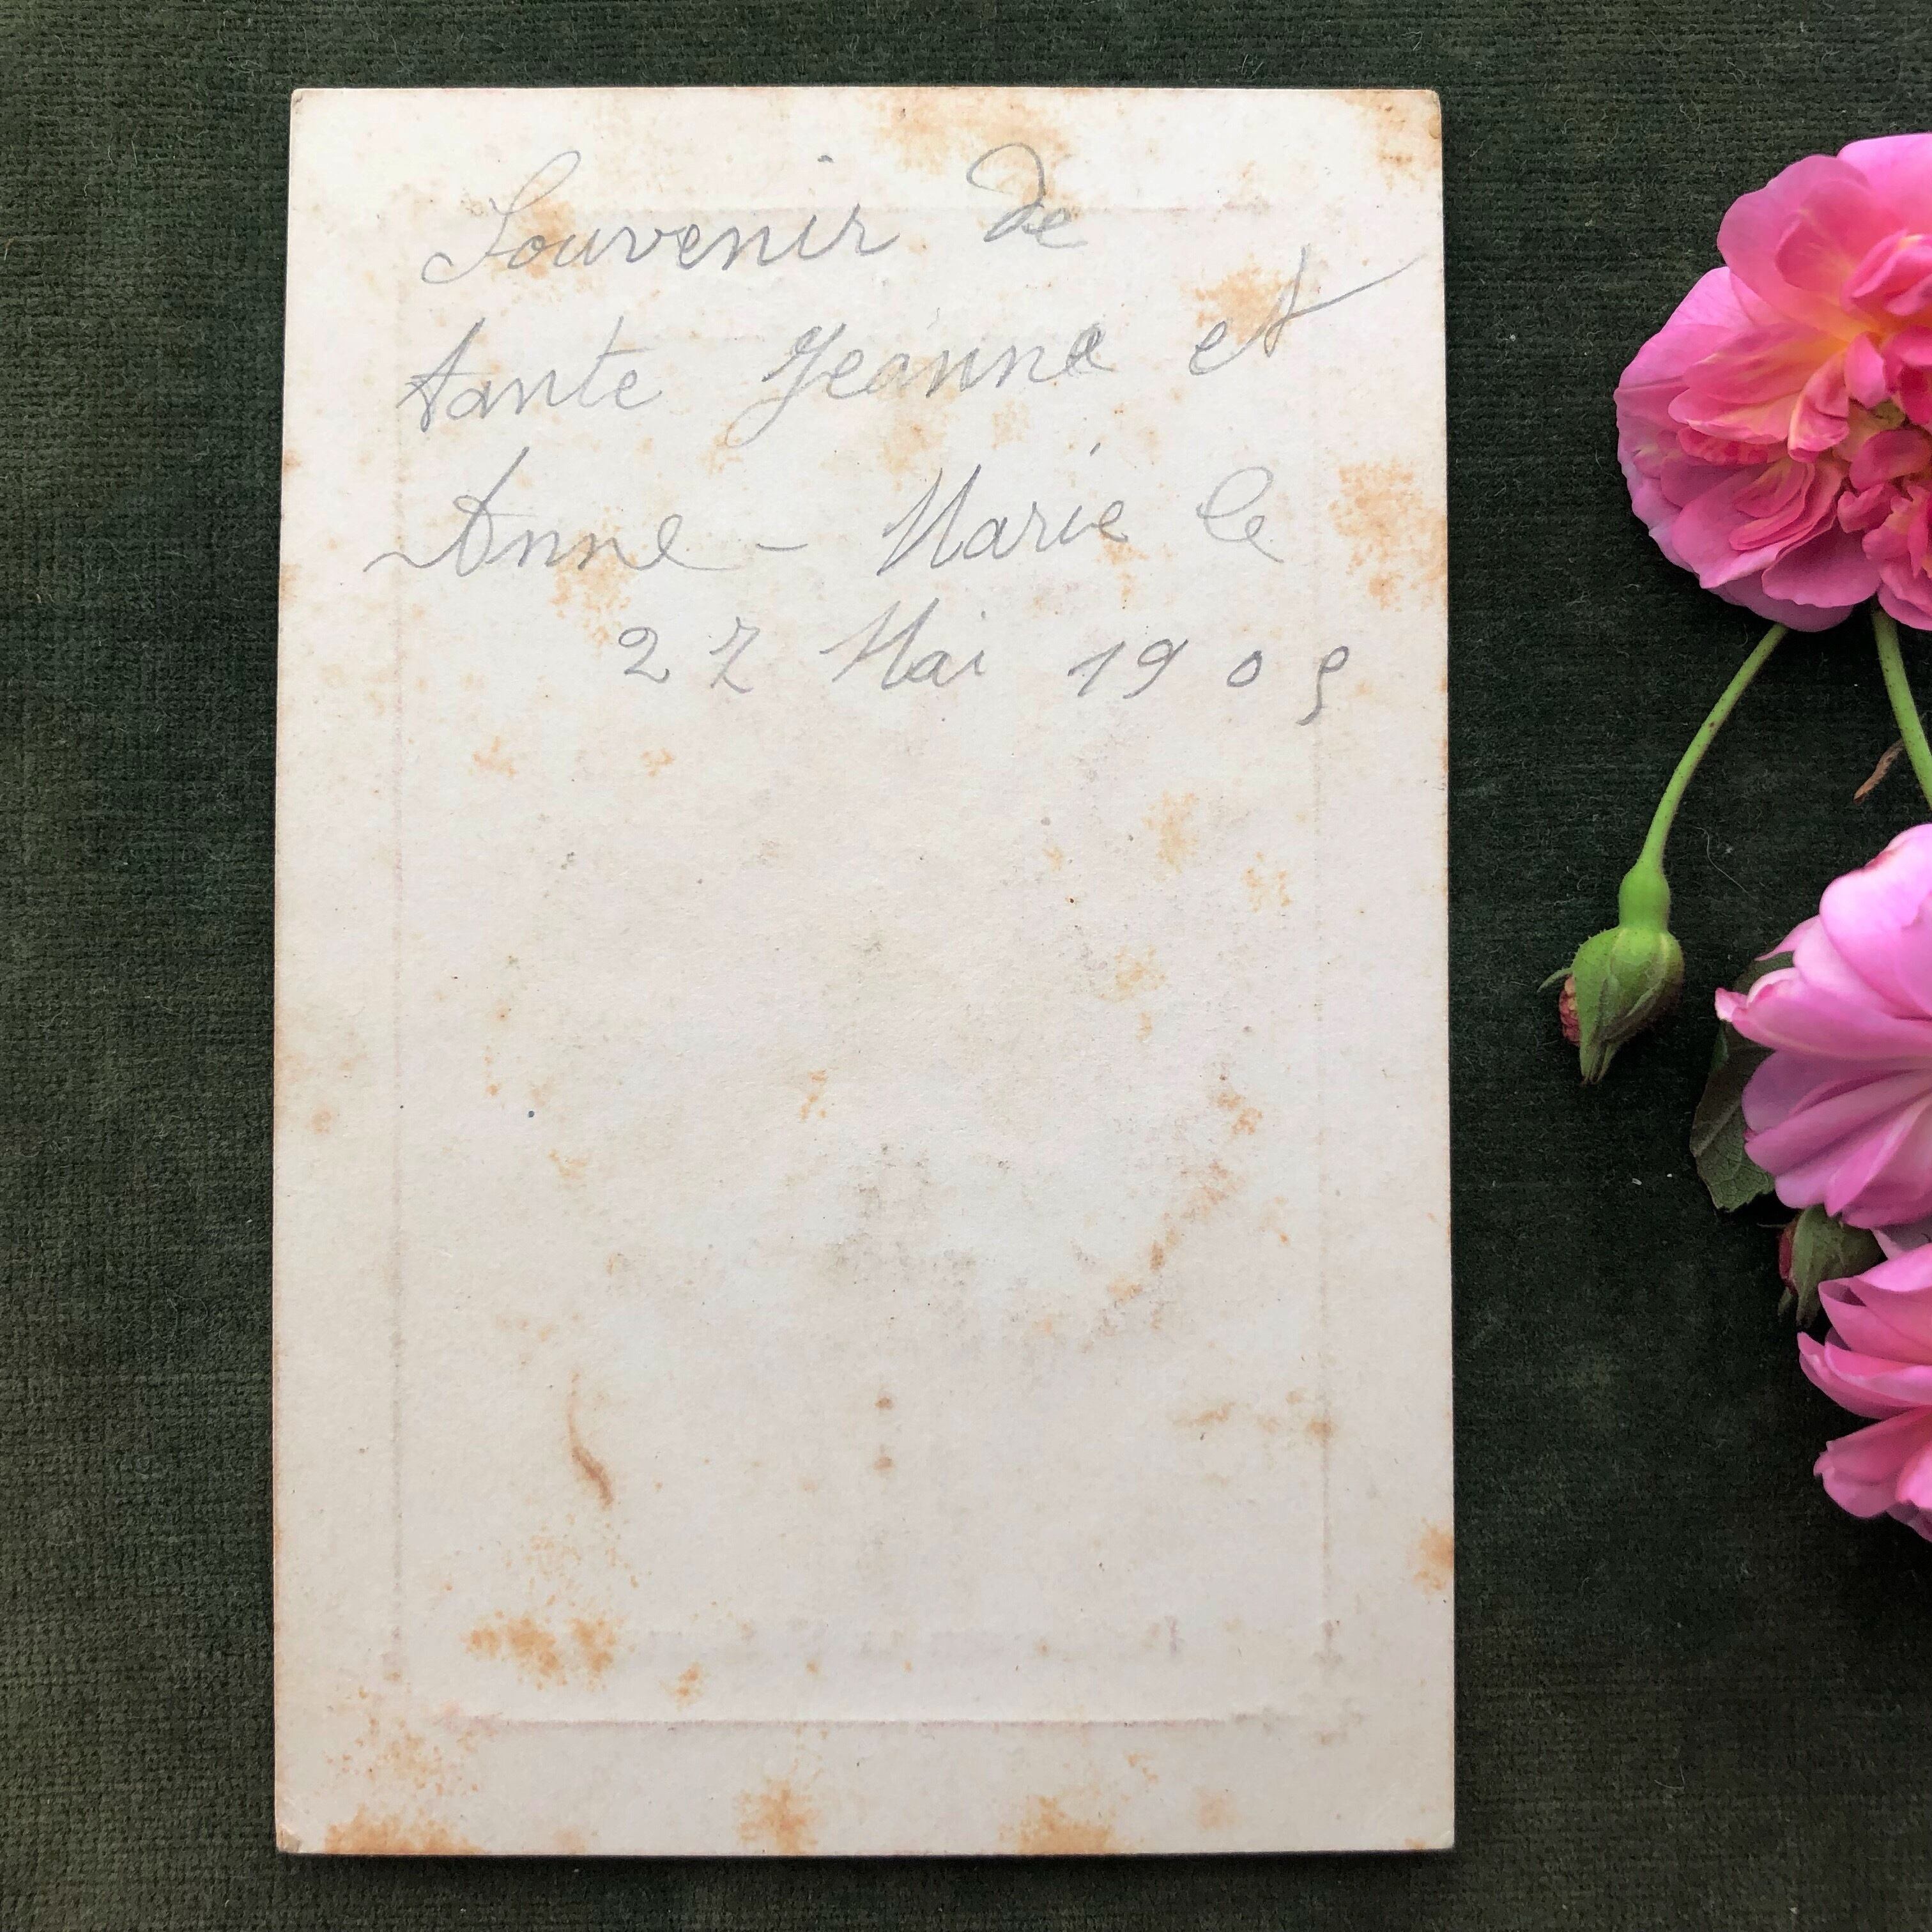 Souvenir de
tante Jeanne et
Anne - Marie le
27 Mai 1905